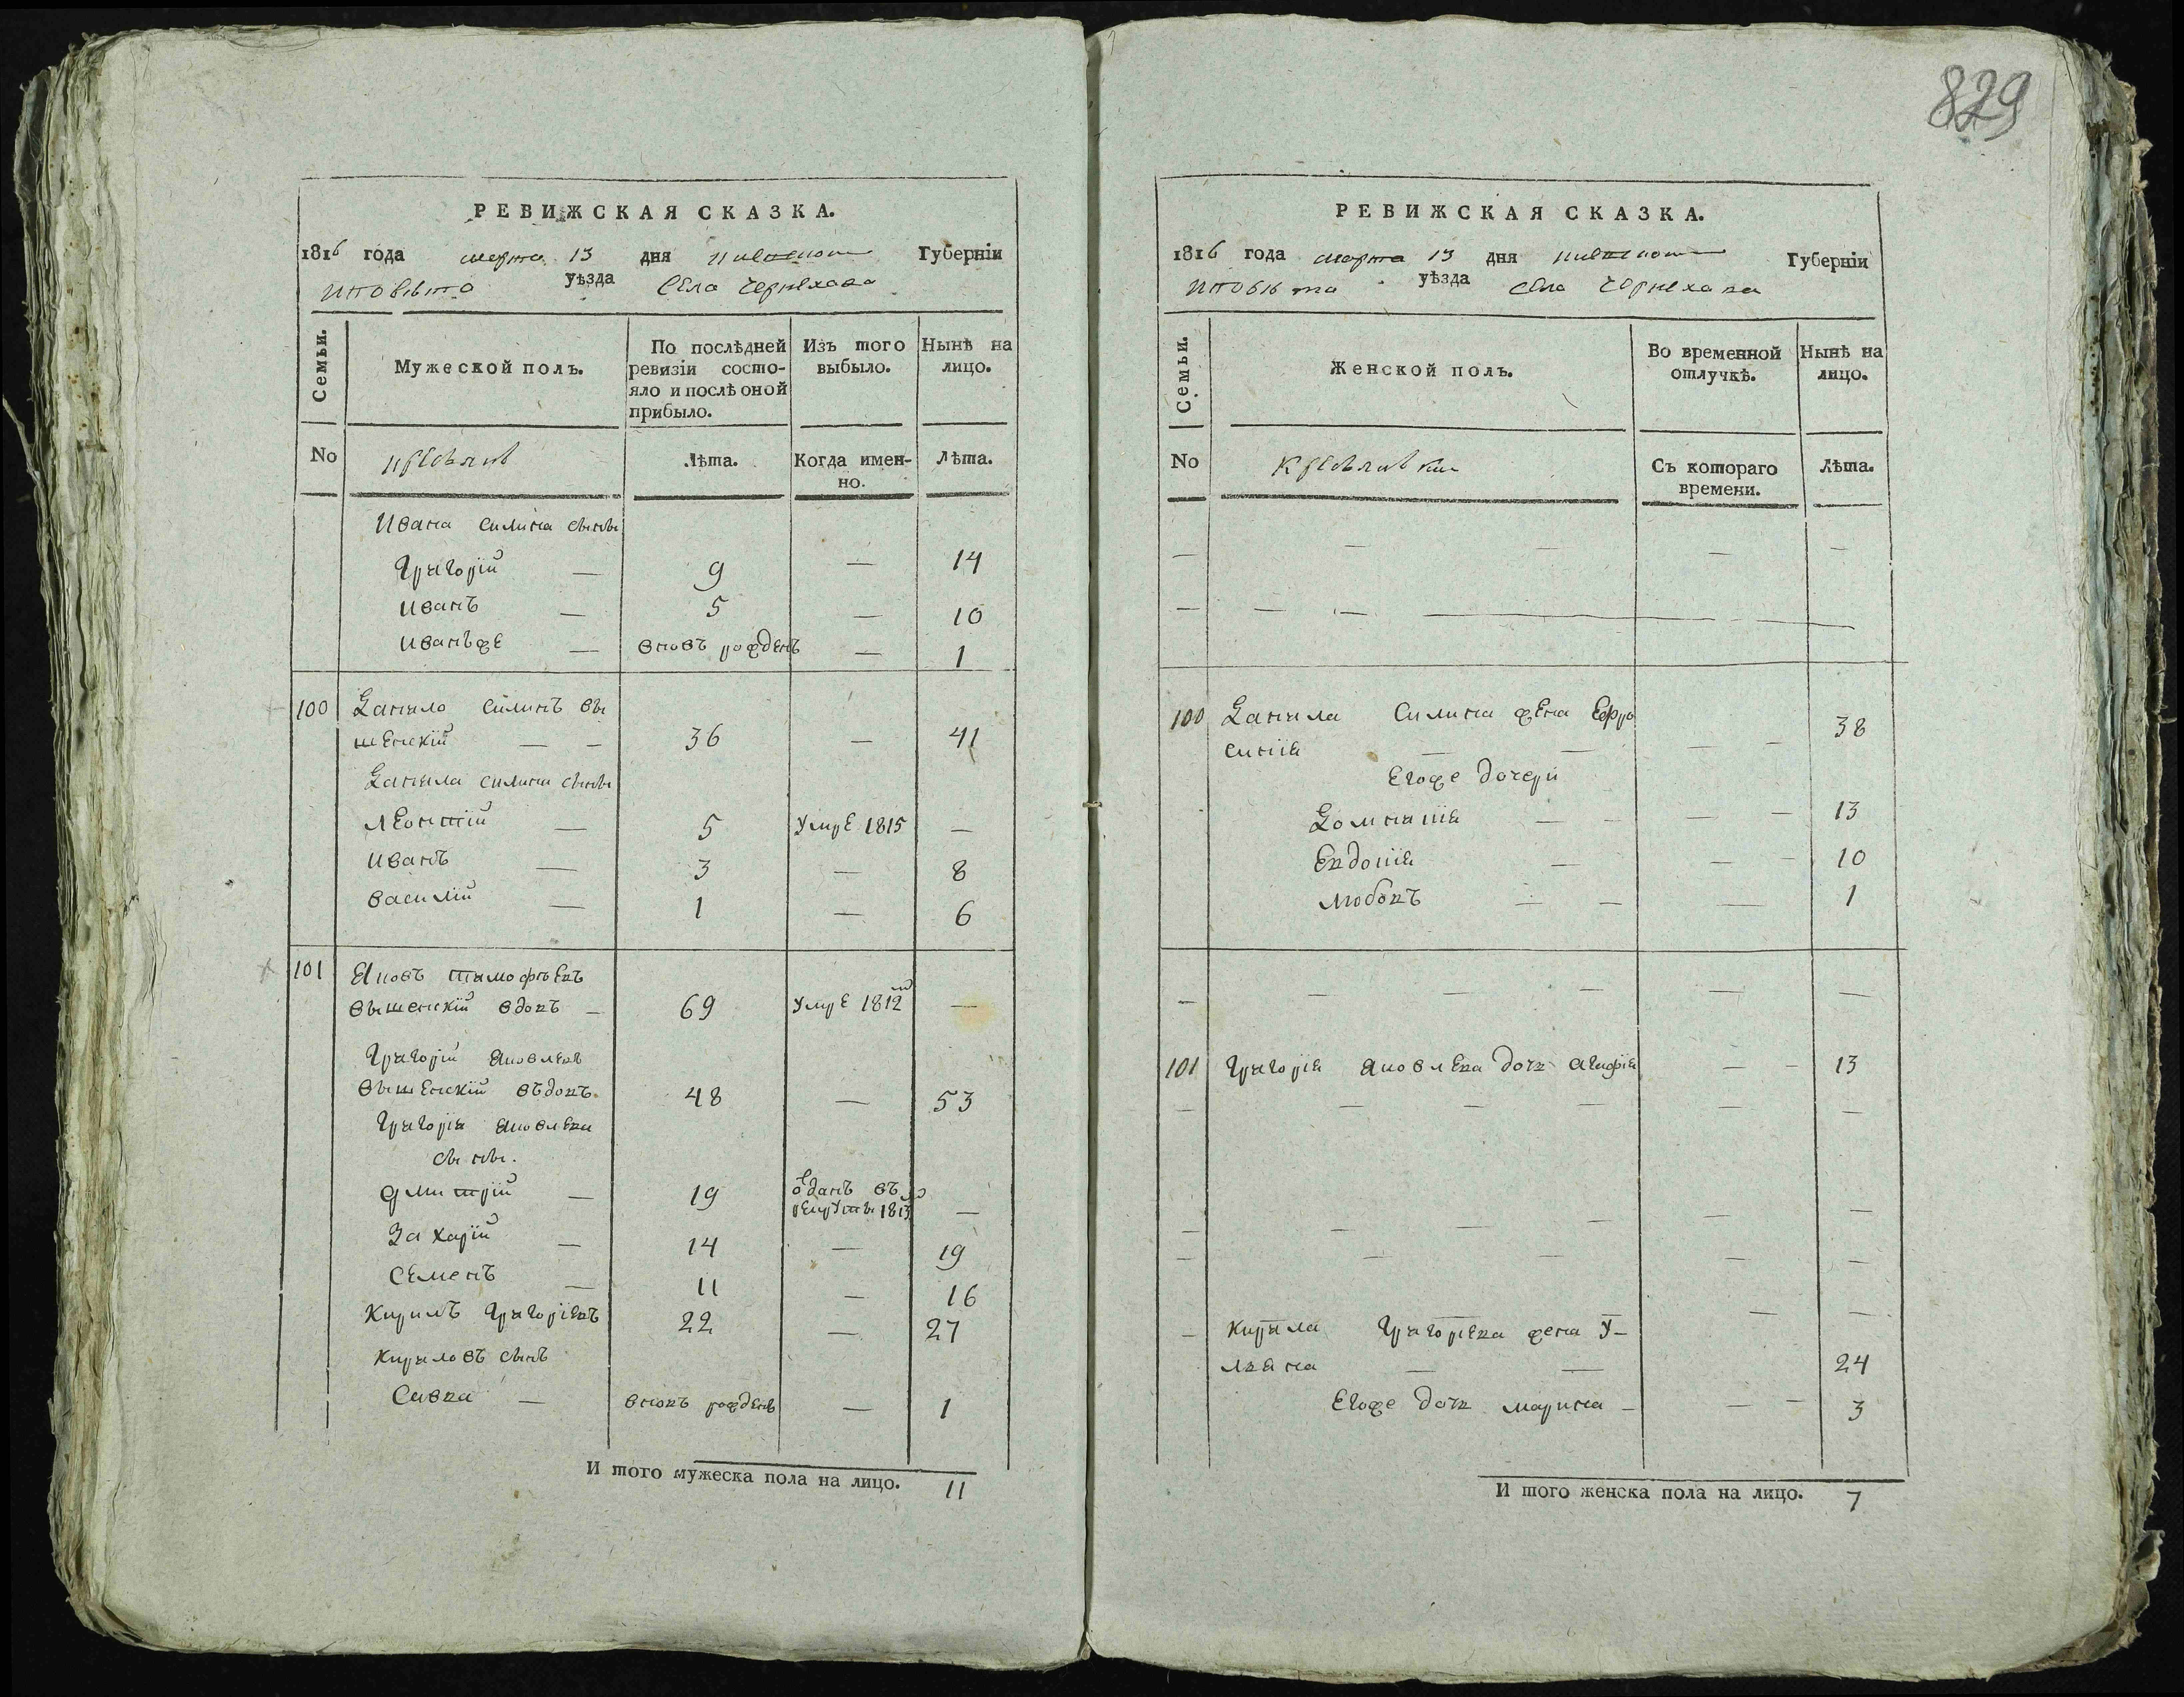 829
РЕВИЖСКАЯ СКАЗКА.
1816 года марта 13 дня Киевской Губерніи
и повѣта уѣзда Села Чернехова
Семьи.
Мужеской полъ.
По послѣдней ревизіи состо-
яло и послѣ оной
прибыло.
Изъ того
выбыло.
Нынѣ на
лицо.
No
Лѣта.
Когда имен-
но.
Лѣта.
Ивана Силина сыны
Григорій — 9 — 14
Иванъ — 5 — 10
Иванъже — вновъ рожденъ — 1
100 Данило Силинъ Вы
шенскій — — 36 — 41
Данила Силина сыны
Леонтій — 5 умре 1815 —
Иванъ — 3 — 8
Василій — 1 — 6
101 Яковъ Тимофѣевъ
Вышенскій вдовъ — 69 умре 1812 —
Григорій Яковлевъ
Вышенскій въдовъ 48 — 53
Григорія Яковлева
сыны.
Дмитрій — 19 оданъ въ
рекруты 1813 —
Захарій — 14 — 19
Семенъ — 11 — 16
Кирилъ Григоріевъ 22 — 27
Кириловъ сынъ
Савва — вновъ рожденъ — 1
И того мужеска пола на лицо. 11
РЕВИЖСКАЯ СКАЗКА.
1816 года марта 13 дня Киевской Губерніи
и повѣта уѣзда Села Чернехова
Семьи.
Женской полъ.
Во временной
отлучкѣ.
Нынѣ на
лицо.
No
Съ котораго
времени.
Лѣта.
100 Данила Силина жена Ефро
синія — — — — 38
Егоже дочери
Домникія — — — — 13
Евдокія — — — 10
Любовъ — — — 1
101 Григорія Яковлева дочь Агафія — — 13
Кирила Григоріева жена У-
ляна — — 24
Егоже дочь Марина — — — 3
И того женска пола на лицо. 7